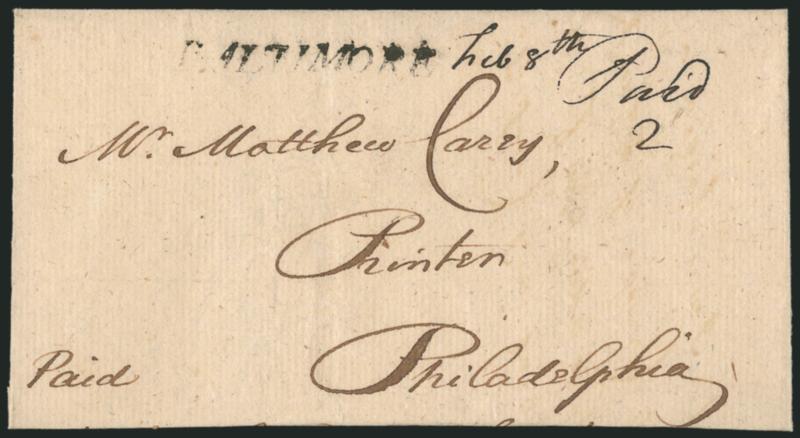 BALTIMORE Feb 8th Paid
2
Mr. Matthew Carey,
Printer
Paid Philadelphia